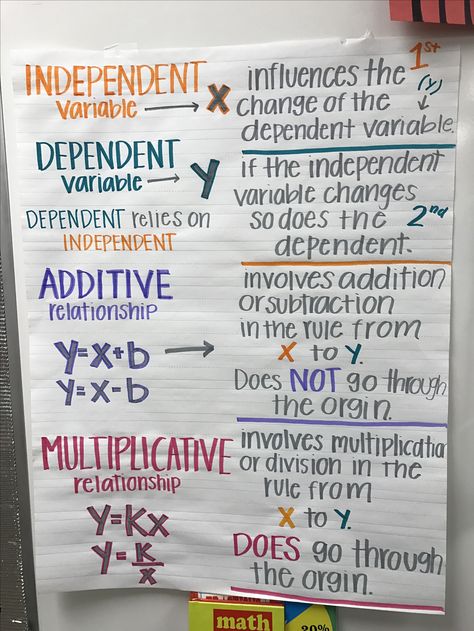 INDEPENDENT
variable → X
influences the 1st
change of the (y) ↓
dependent variable.
DEPENDENT
variable → y
DEPENDENT relies on
INDEPENDENT
if the independent
variable changes
so does the 2nd
dependent.
ADDITIVE
relationship
y=x+b →
y=x-b
involves addition
or subtraction
in the rule from
X to Y.
Does NOT go through
the orgin.
MULTIPLICATIVE
relationship
y=Kx
y=K/x
involves multiplication
or division in the
rule from
X to Y.
DOES go through
the orgin.
math
20%